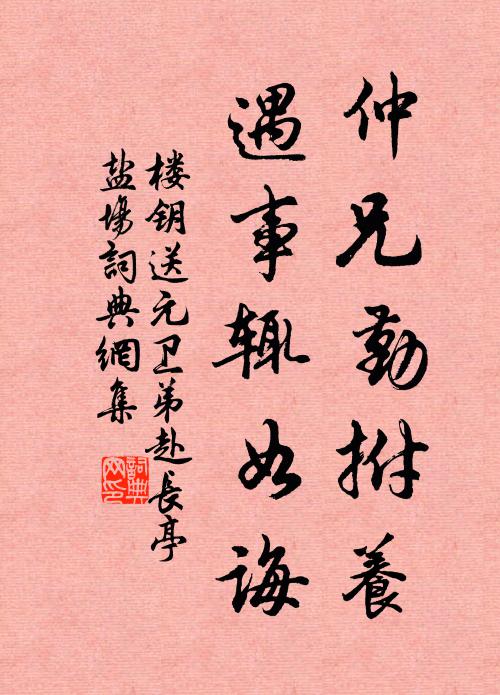 仲兄勤拊養
遇事輒如誨
楼钥送元卫弟赴長亭
盐場詞典網集
詞典網印